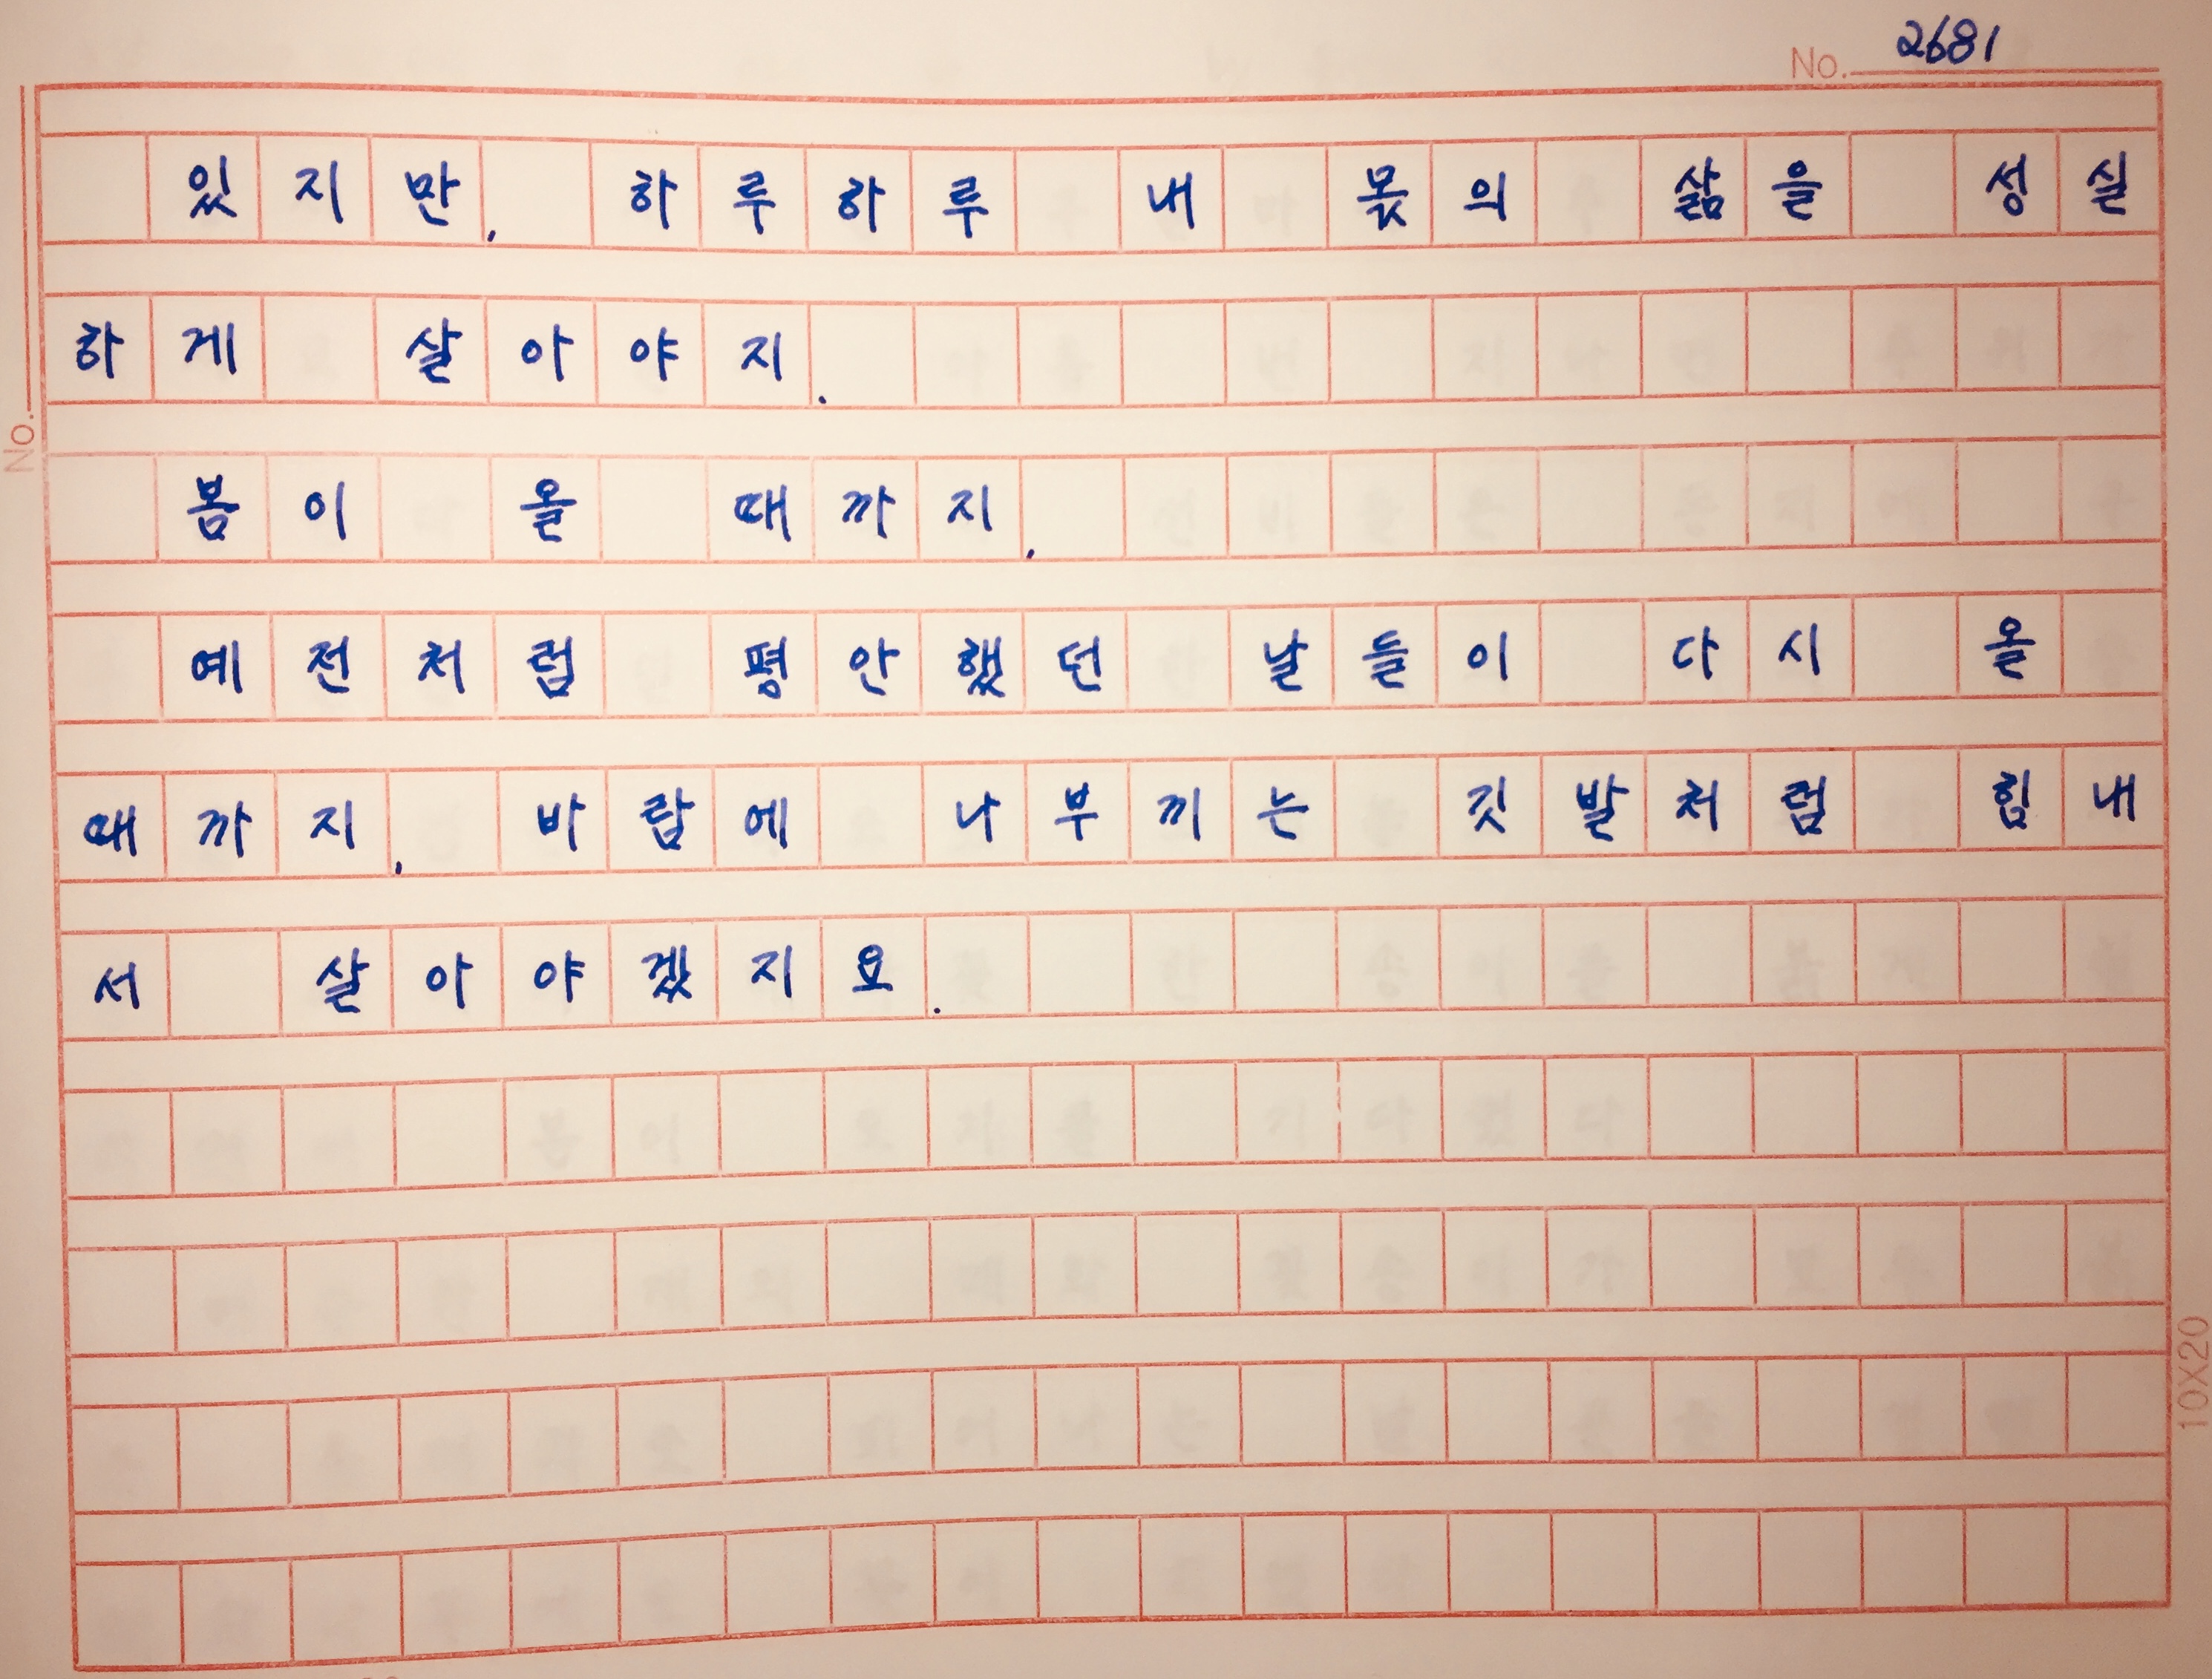 No. 2681
있지만, 하루하루 내 몫의 삶을 성실
하게 살아야지.
No.
봄이 올 때까지,
예전처럼 평안했던 날들이 다시 올
때까지, 바람에 나부끼는 깃발처럼 힘내
서 살아야겠지요.
10X20